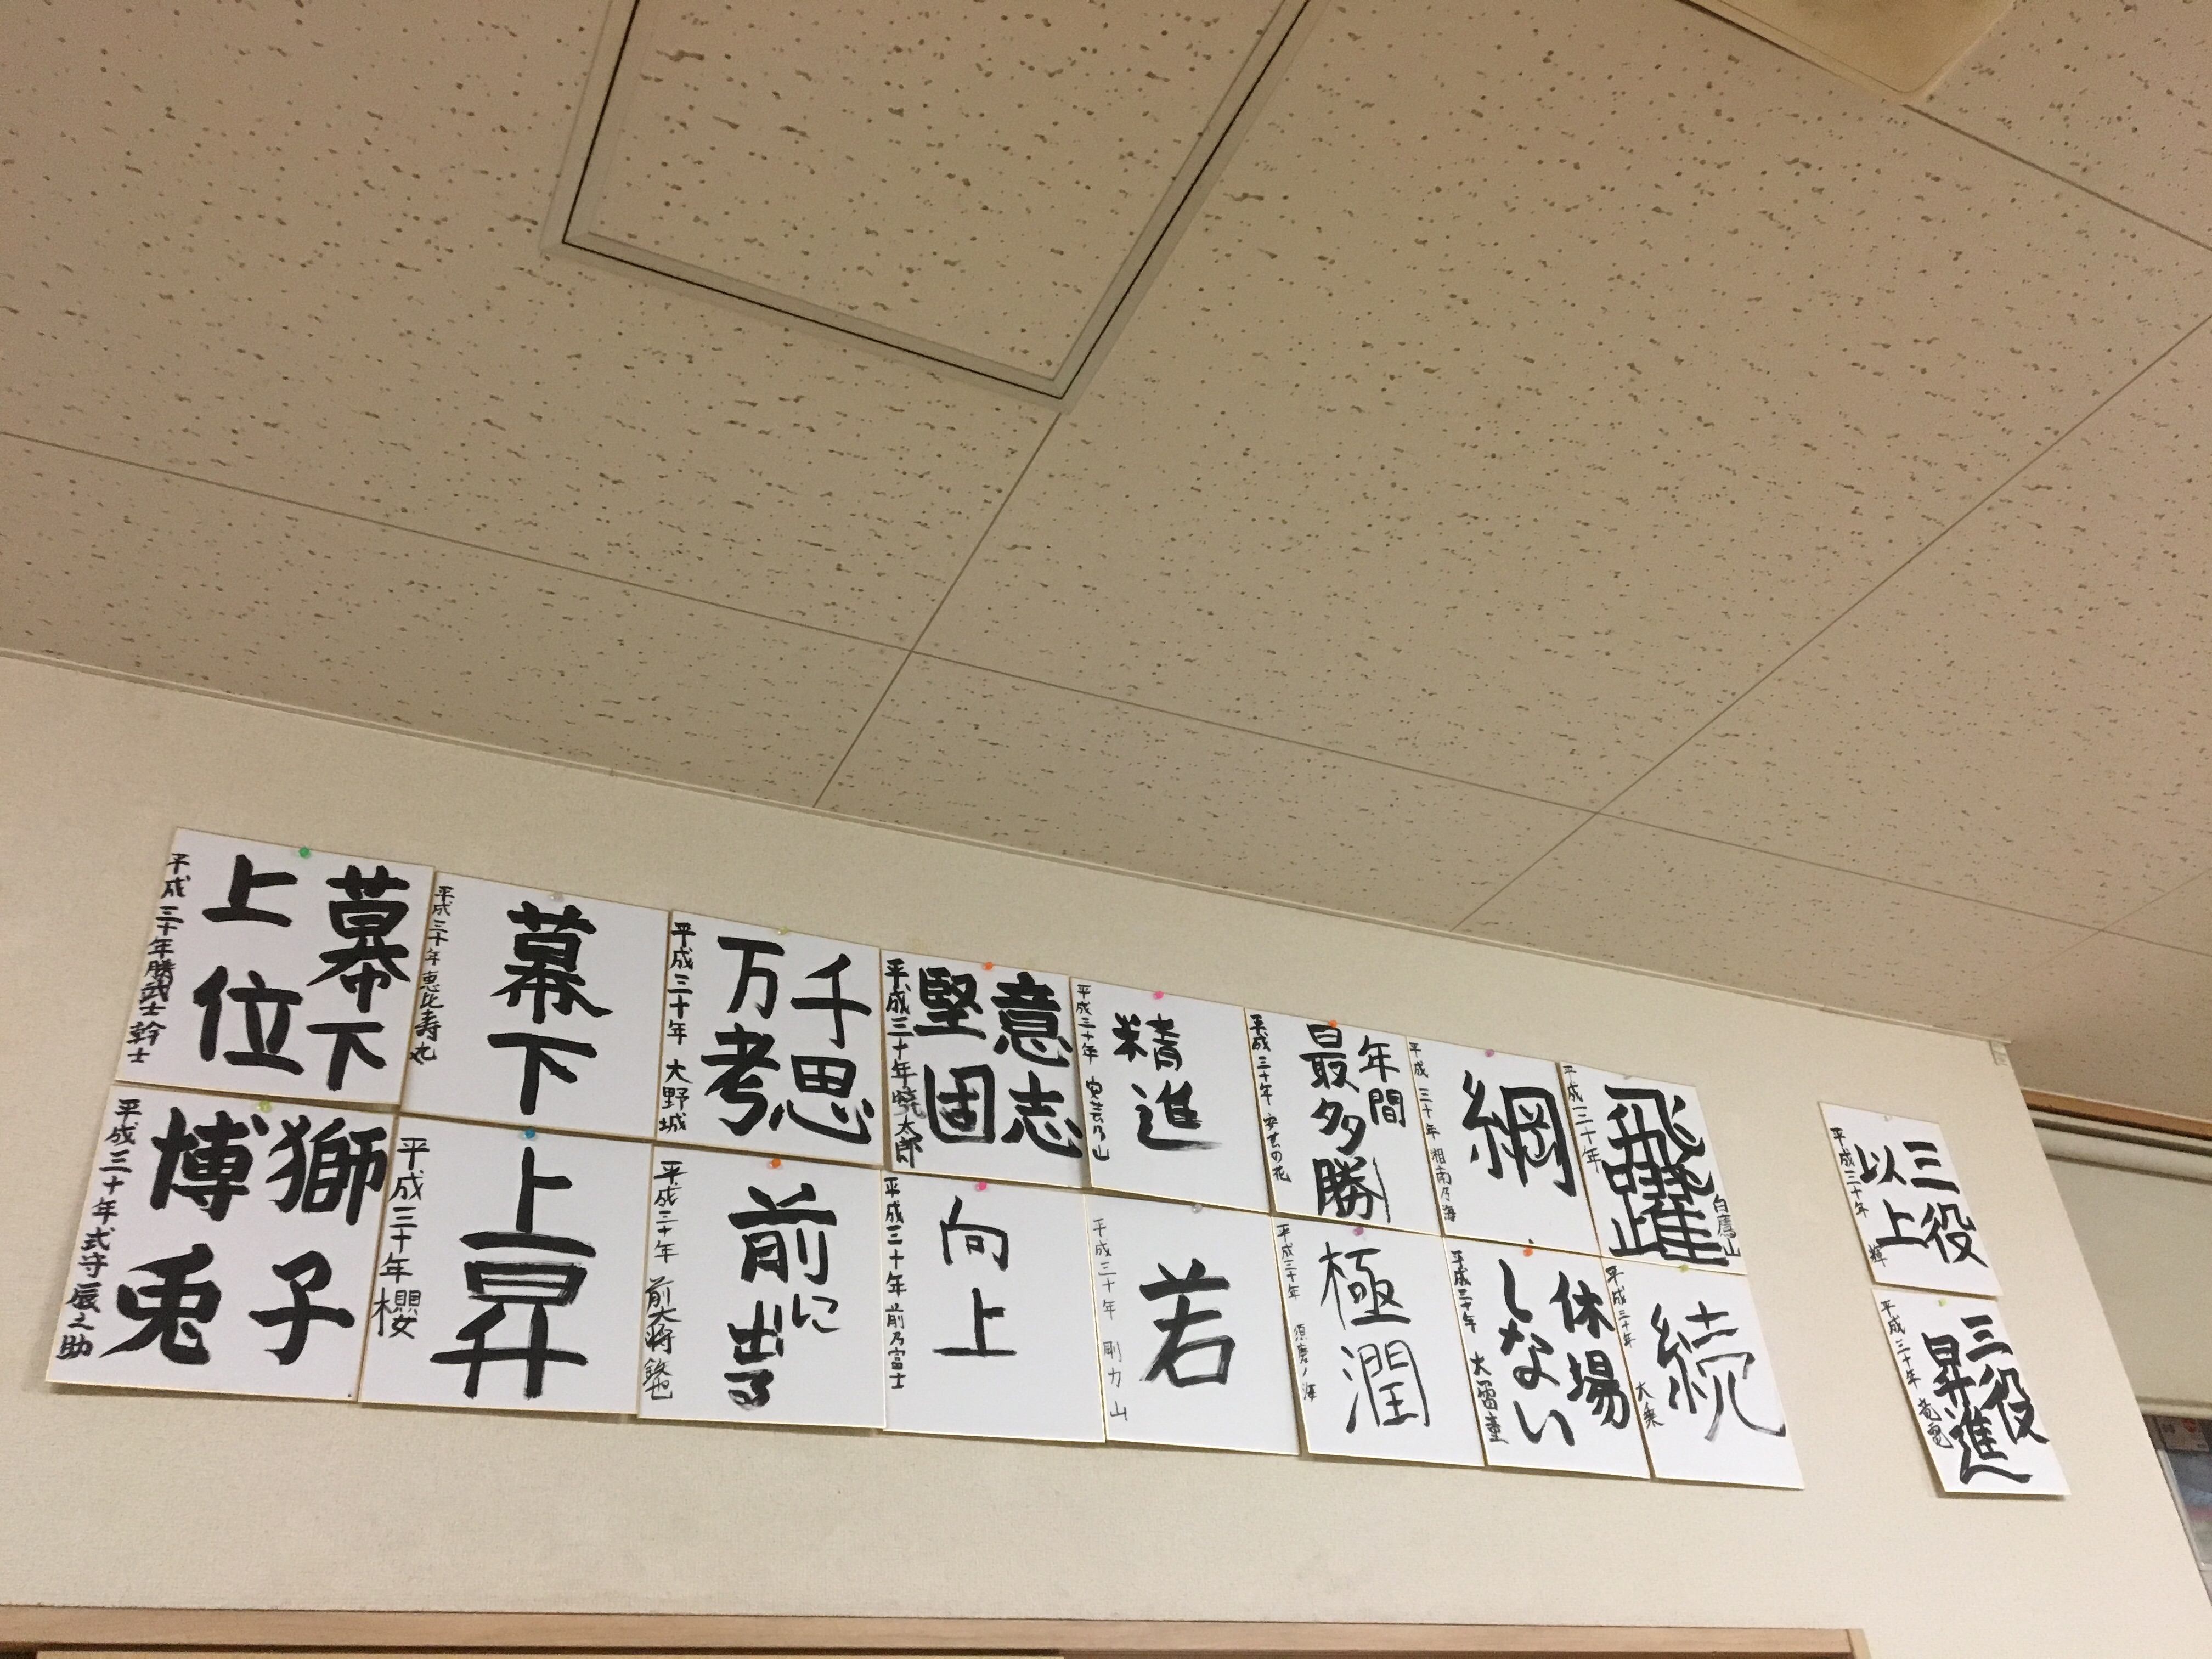 三役
以上
平成三十年 輝
三役
昇進
平成三十年 竜電
飛躍
平成三十年
白鷹山
綱
平成三十年 湘南乃海
年間
最多勝
平成三十年 安芸の花
精進
平成三十年 安芸乃山
意志
堅固
平成三十年 暁太郎
千思
万考
平成三十年 大野城
幕下
平成三十年 恵比寿丸
幕下
上位
平成三十年 勝武士幹士
続
平成三十年 大乗
休場
しない
平成三十年
極潤
平成三十年 須磨ノ海
若
平成三十年 剛力山
向上
平成三十年 前乃富士
前に
出る
平成三十年 前大将
上昇
平成三十年 櫻
獅子
博兎
平成三十年 式守辰之助